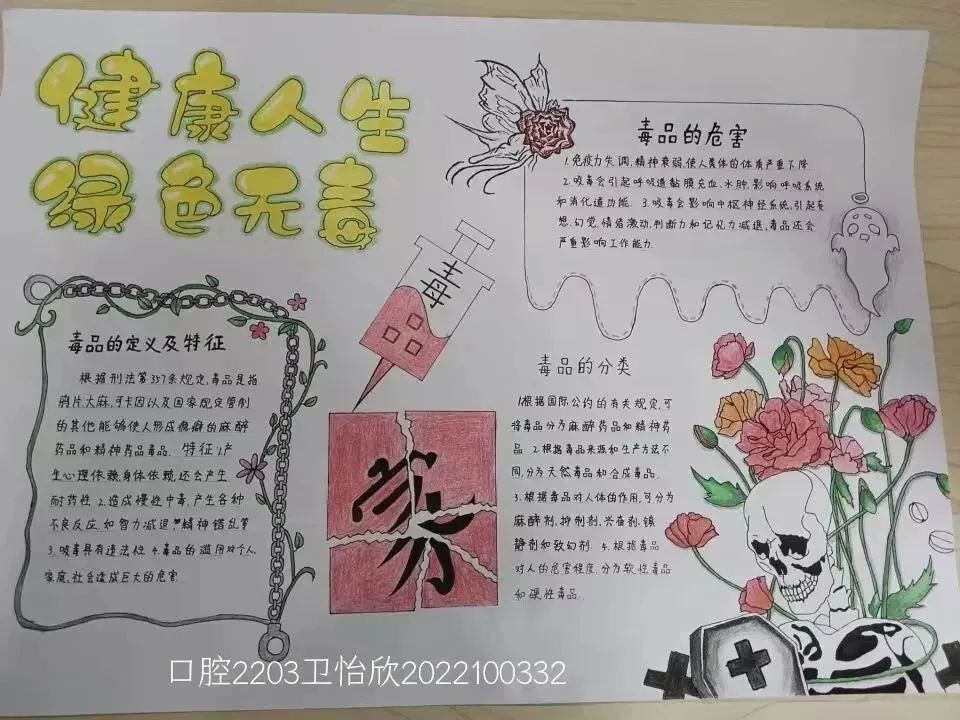 健康人生
绿色无毒
毒品的危害
1.免疫力失调,精神衰弱,使人类体的体质严重下降
2.吸毒会引起呼吸道黏膜充血,水肿,影响呼吸系统
和消化道功能. 3.吸毒会影响中枢神经系统,引起妄
想,幻觉,情绪激动,判断力和记忆力减退,毒品还会
严重影响工作能力.
毒
毒品的定义及特征
根据刑法第357条规定,毒品是指
鸦片,大麻,可卡因以及国家规定管制
的其他能够使人形成瘾癖的麻醉
药品和精神药品毒品. 特征 1.产
生心理依赖,身体依赖,还会产生
耐药性 2.造成慢性中毒,产生各种
不良反应,如智力减退,精神错乱等
3.吸毒具有违法性 4.毒品的滥用对个人,
家庭,社会造成巨大的危害.
家
毒品的分类
1.根据国际公约的有关规定,可
将毒品分为麻醉药品和精神药
品 2.根据毒品来源和生产方法不
同,分为天然毒品和合成毒品.
3.根据毒品对人体的作用,可分为
麻醉剂,抑制剂,兴奋剂,镇
静剂和致幻剂. 4.根据毒品
对人的危害程度,分为软性毒品
和硬性毒品.
口腔2203卫怡欣2022100332